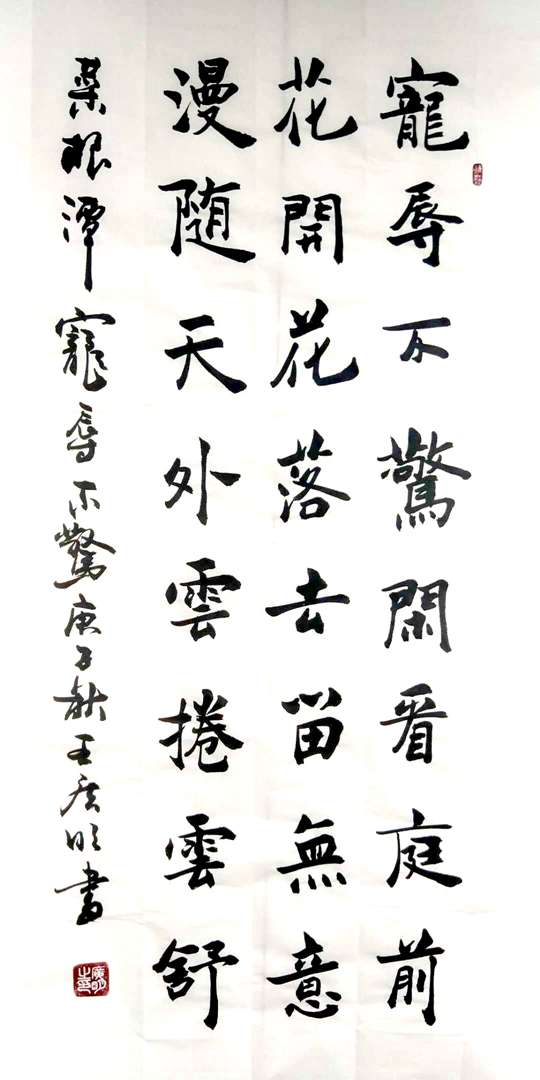 寵辱不驚閑看庭前
花開花落去留無意
漫随天外雲捲雲舒
菜根潭寵辱不驚庚子秋王廣明書
廣明之印